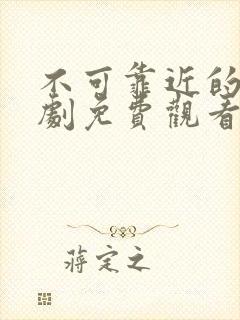 不可靠近的
劇免費觀看
蔣定之